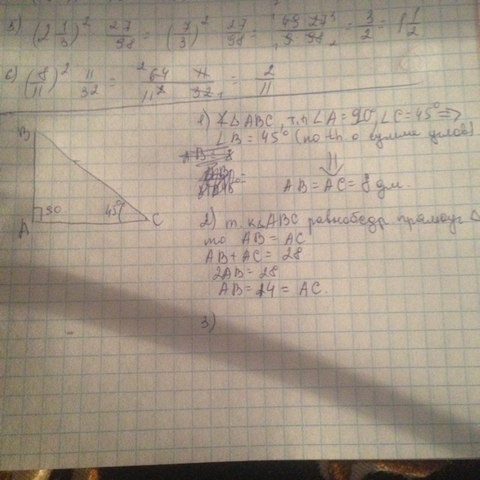 5) (2 1/3)² · 27/98 = (7/3)² · 27/98 = 49 · 27 / 9 · 98 = 3/2 = 1 1/2
6) (8/11)² · 11/32 = 64 · 11 / 11² · 32 = 2/11
1) ∡△ABC, т.к ∠A = 90, ∠C = 45° =>
∠B = 45° (по th. о сумме углов)
⇓
AB = AC = 8 дм.
2) т. к △ABC равнобедр прямоуг △
то AB = AC
AB + AC = 28
2AB = 28
AB = 14 = AC.
3)
B
90
45°
A
C